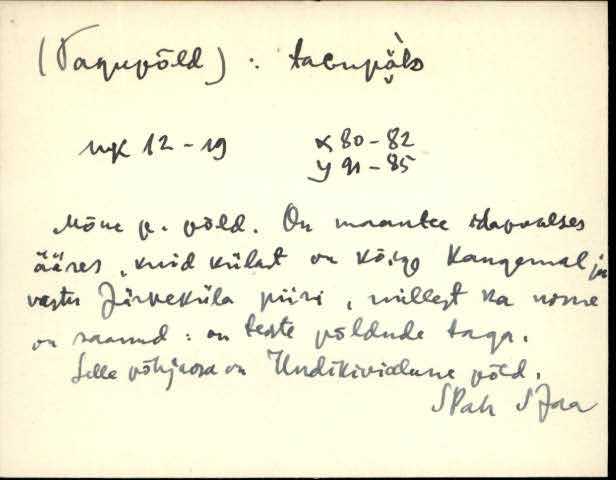 (Tagupõld) : tagupǟlo
MK 12-19 X 80-82
Y 91-85
Mõne p. põld. On maantee idapoolses
ääres, kuid külast on kõige kaugemal ja
vastu Järveküla piiri, millest ka nime
on saanud: on teiste põldude taga.
Selle põhjaosa on Hundikivialune põld.